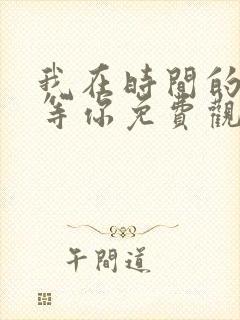 我在時間的
等你免費觀
午間道